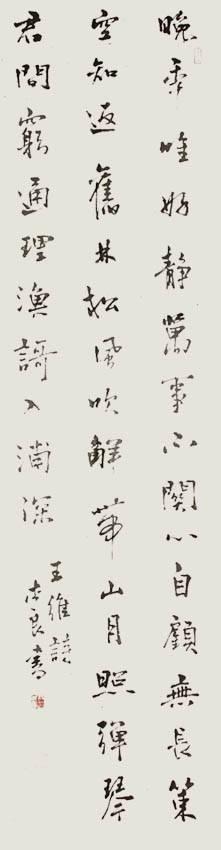 晚年唯好靜萬事不關心自顧無長策
空知返舊林松風吹解帶山月照彈琴
君問窮通理漁謌入浦深
王維詩
良書